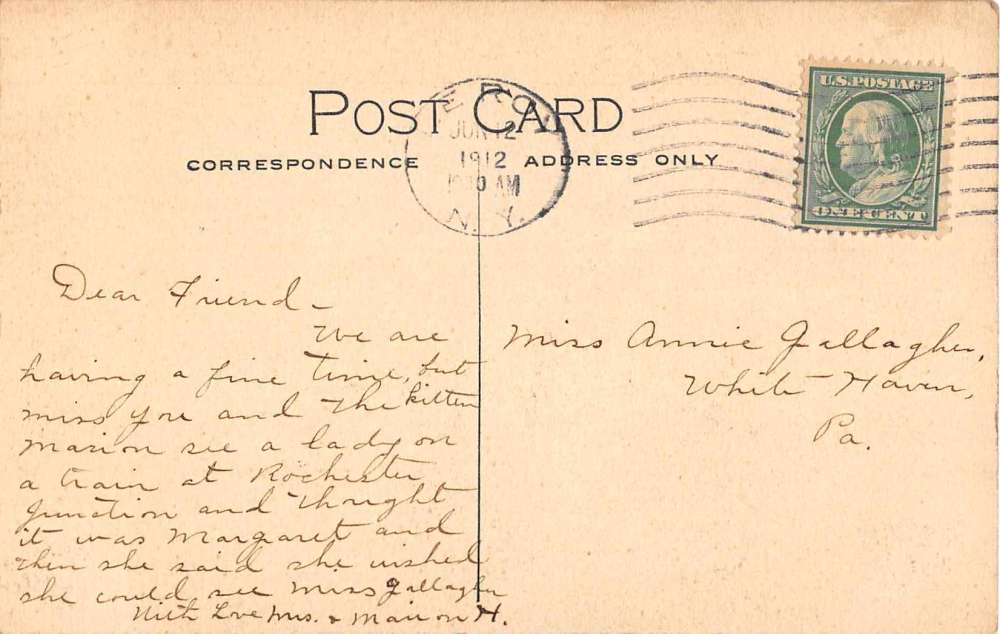 POST CARD
CORRESPONDENCE
ADDRESS ONLY
E ROY
JUN 12
1912
AM
N.Y.
U.S. POSTAGE
ONE CENT
Dear Friend -
We are
having a fine time, but
miss you and the kitten
Marion see a lady on
a train at Rochester
Junction and thought
it was Margaret and
then she said she wished
she could see Miss Gallagher
With Love Mrs. & Marion H.
Miss Annie Gallagher,
White Haven,
Pa.